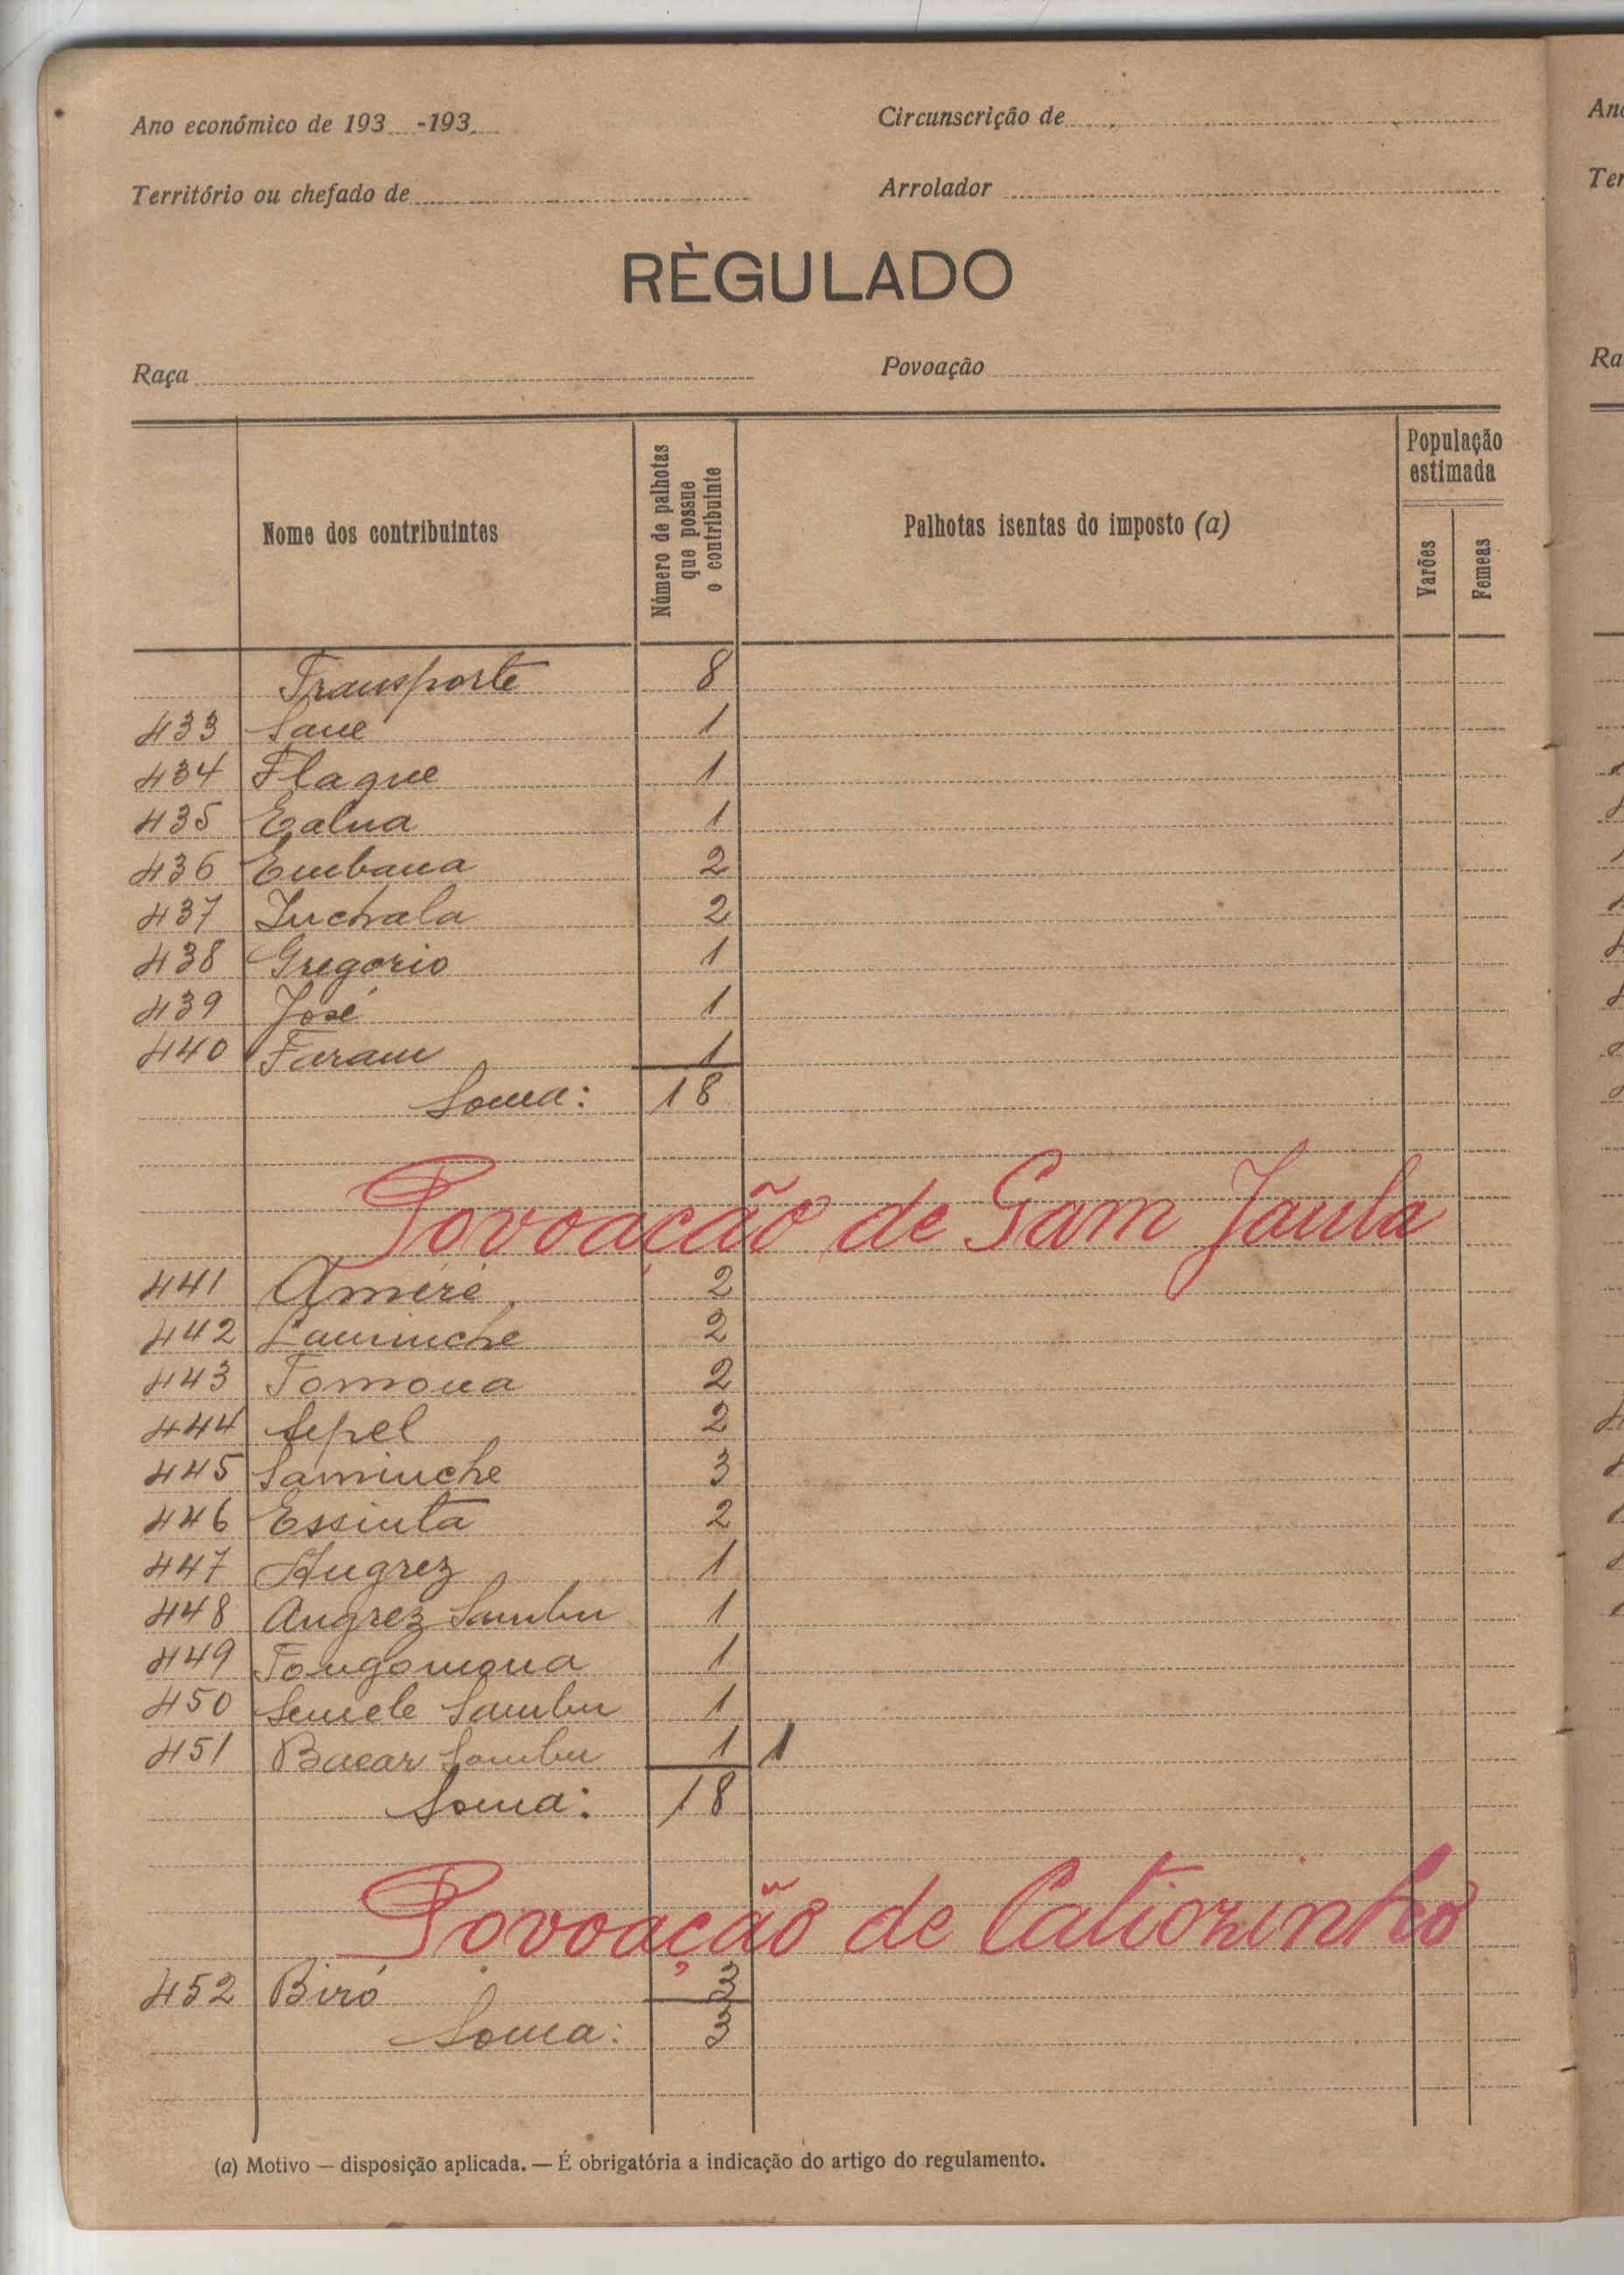 Ano económico de 193 -193
Circunscrição de
Território ou chefado de
Arrolador
RÈGULADO
Raça
Povoação
Nome dos contribuintes
Número de palhotas que possue o contribuinte
Palhotas isentas do imposto (a)
População estimada
Varões
Femeas
Transporte 8
433 Sane 1
434 Flaque 1
435 Ealna 1
436 Embana 2
437 Inchala 2
438 Gregorio 1
439 José 1
440 Faram 1
Soma: 18
Povoação de Gam Jaula
441 Amére 2
442 Laminche 2
443 Tomona 2
444 Sepel 2
445 Saminche 3
446 Essinta 2
447 Angrez 1
448 Angrez Sambu 1
449 Tongomona 1
450 Semele Sambu 1
451 Bacar Sambu 1 1
Soma: 18
Povoação de Catiozinho
452 Biró 3
Soma: 3
(a) Motivo — disposição aplicada. — É obrigatória a indicação do artigo do regulamento.